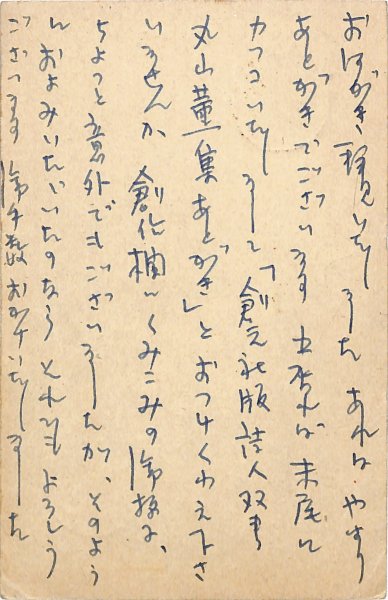 おはがき拝見いたしました あれは やはり
あとがきでございます 出来れば 末尾に
カッコいたしまして「創元社版詩人双書
丸山薫集あとがき」とおつけくわえ下さ
いませんか 創作欄にくみこみの御扱は、
ちょっと意外でもございましたが、そのよう
におよみいただいたのなら それでもよろしう
ございます 御手数おかけいたしました